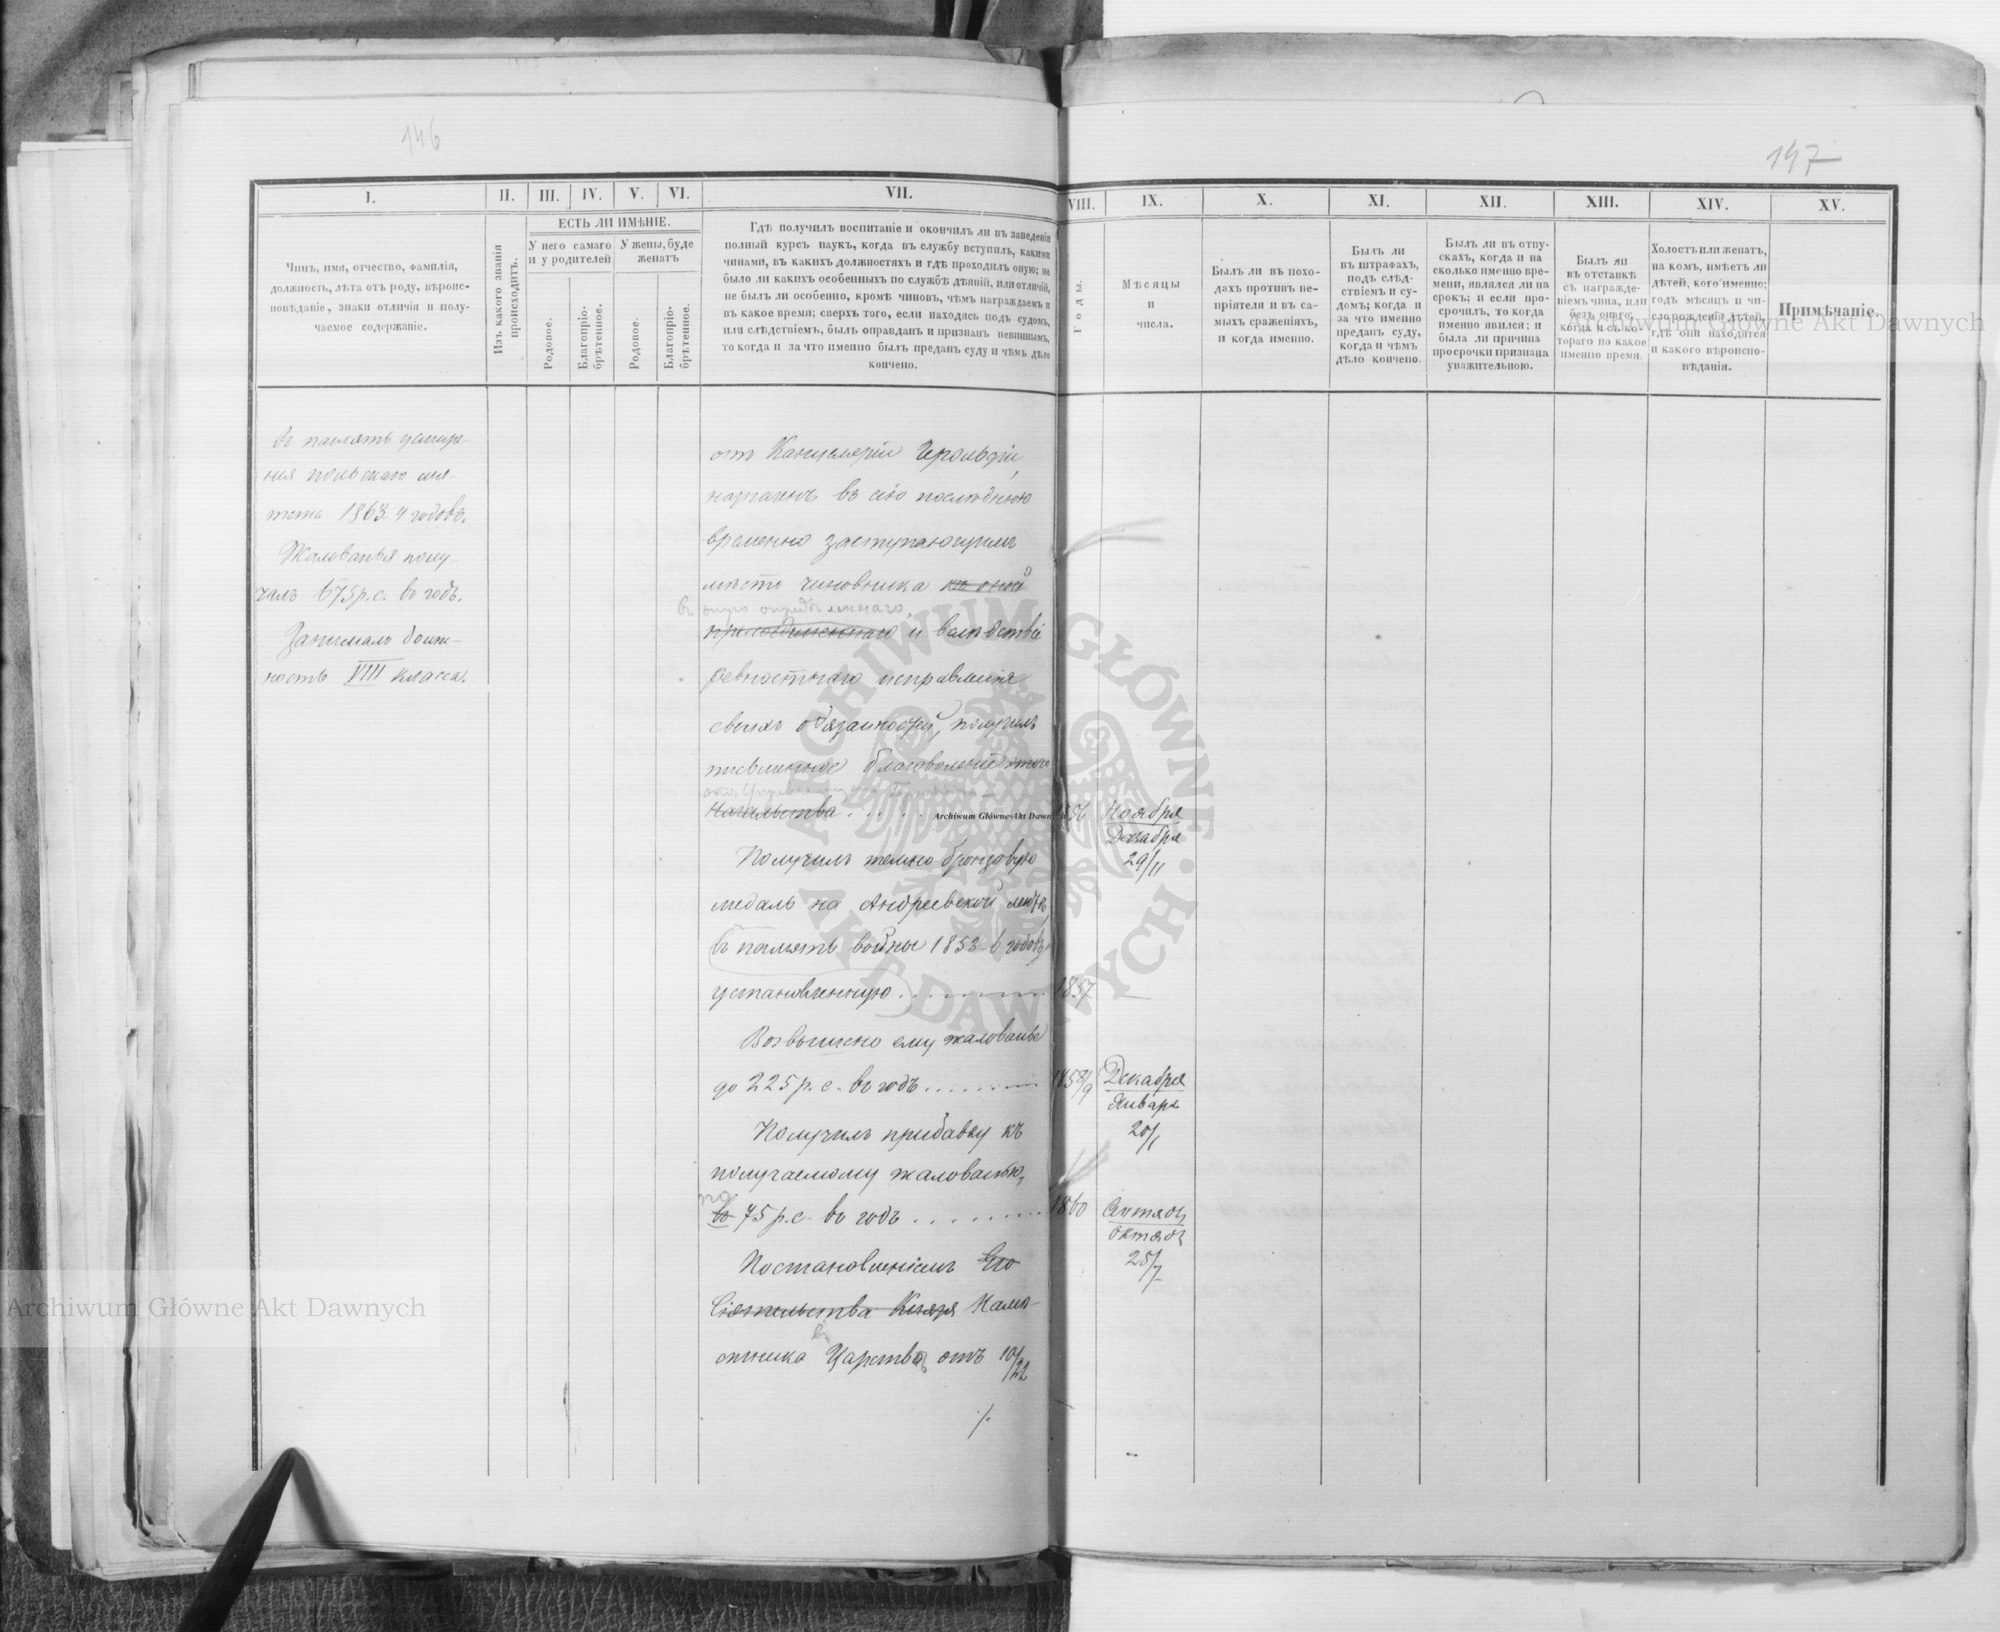 146
147
I.
II.
III.
IV.
V.
VI.
VII.
VIII.
IX.
X.
XI.
XII.
XIII.
XIV.
XV.
Чинъ, имя, отчество, фамилія,
должность, лѣта отъ роду, вѣроис-
повѣданіе, знаки отличія и полу-
чаемое содержаніе.
Изъ какого званія
происходитъ.
ЕСТЬ ЛИ ИМѢНІЕ.
У него самаго
и у родителей
У жены, буде
женатъ
Родовое.
Благопріо-
брѣтенное.
Родовое.
Благопріо-
брѣтенное.
Гдѣ получилъ воспитаніе и окончилъ ли въ заведеніи
полный курсъ наукъ, когда въ службу вступилъ, какими
чинами, въ какихъ должностяхъ и гдѣ проходилъ оную; не
было ли какихъ особенныхъ по службѣ дѣяній, или отличій,
не былъ ли особенно, кромѣ чиновъ, чѣмъ награждаемъ и
въ какое время; сверхъ того, если находясь подъ судомъ,
или слѣдствіемъ, былъ оправданъ и признанъ невиннымъ,
то когда и за что именно былъ преданъ суду и чѣмъ дѣло
кончено.
Годы.
Мѣсяцы
и
числа.
Былъ ли въ похо-
дахъ противъ не-
пріятеля и въ са-
мыхъ сраженіяхъ,
и когда именно.
Былъ ли
въ штрафахъ,
подъ слѣд-
ствіемъ и су-
домъ; когда и
за что именно
преданъ суду,
когда и чѣмъ
дѣло кончено.
Былъ ли въ отпу-
скахъ, когда и на
сколько именно вре-
мени, являлся ли на
срокъ; и если про-
срочилъ, то когда
именно явился; и
была ли причина
просрочки признана
уважительною.
Былъ ли
въ отставкѣ
съ награжде-
ніемъ чина, или
безъ онаго;
когда и съ ко-
тораго по какое
именно время.
Холостъ или женатъ,
на комъ, имѣетъ ли
дѣтей, кого именно;
годъ мѣсяцъ и чи-
сло рожденія дѣтей,
гдѣ они находятся
и какого вѣроиспо-
вѣданія.
Примѣчаніе.
въ память усмире-
нія польскаго мя-
тежа 1863-4 годовъ.
Жалованья полу-
чалъ 675 р. с. въ годъ.
Занималъ долж-
ность VIII класса.
отъ Канцеляріи Герольдіи,
назначенъ въ сію послѣднюю
временно заступающимъ
мѣсто чиновника къ оной
въ оную опредѣленнаго,
прикомандированнаго и вслѣдствіе
ревностнаго исправленія
своихъ обязанностей, получилъ
письменное благоволеніе
Начальства . . . . .
1856
Ноября
Декабря
29/11
Получилъ темно бронзовую
медаль на Андреевской лентѣ,
въ память войны 1853-6 годовъ
установленную . . . . . .
1857
—
Возвышено ему жалованье
до 225 р. с. въ годъ . . . . . .
1858/9
Декабря
Января
20/1
Получилъ прибавку къ
получаемому жалованью,
по
въ 75 р. с. въ годъ . . . . . . .
1860
Сентяб.
Октяб.
25/7
Постановленіемъ Его
Сіятельства Князя Намѣ-
стника Царства, отъ 10/22
въ
./.
ARCHIWUM GŁÓWNE · AKT DAWNYCH ·
Archiwum Główne Akt Dawnych
Archiwum Główne Akt Dawnych
Archiwum Główne Akt Dawn